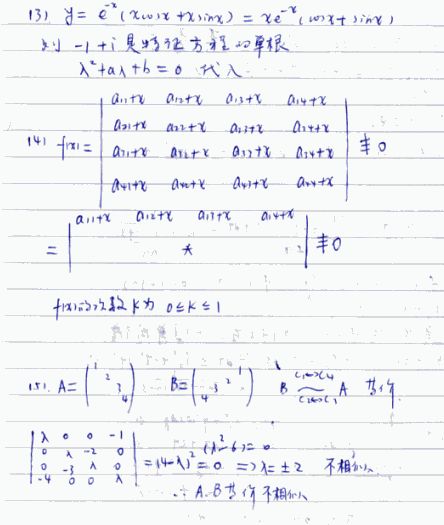 (3) y = e^{-x}(xcosx + xsinx) = xe^{-x}(cosx + sinx)
则 -1+i 是特征方程的单根
λ²+aλ+b=0 代入
(4) f(x) = | a₁₁+x a₁₂+x a₁₃+x a₁₄+x
a₂₁+x a₂₂+x a₂₃+x a₂₄+x
a₃₁+x a₃₂+x a₃₃+x a₃₄+x
a₄₁+x a₄₂+x a₄₃+x a₄₄+x | ≢ 0
= | a₁₁+x a₁₂+x a₁₃+x a₁₄+x
* | ≢ 0
f(x)的次数 k 为 0≤k≤1
(5) A = (1 2 3 4) B = (4 3 2 1) B C₁↔C₄ C₂↔C₃ A 等价
| λ 0 0 -1
0 λ -2 0
0 -3 λ 0
-4 0 0 λ | = (4-λ)²(λ²-6)=0 = 0 ⇒ λ = ±2 不相似
∴ A.B等价不相似